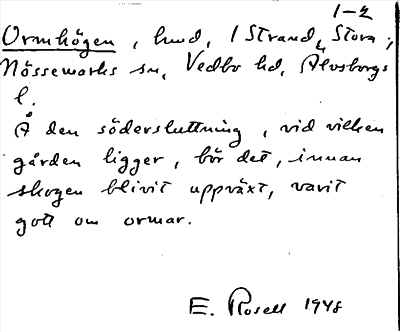 1-2
Ormhögen, lund, 1 Strand, Stora,
Nössemarks sn, Vedbo hd, Älvsborgs
l.
Å den södersluttning, vid vilken
gården ligger, bör det, innan
skogen blivit uppväxt, varit
gott om ormar.
E. Rosell 1948